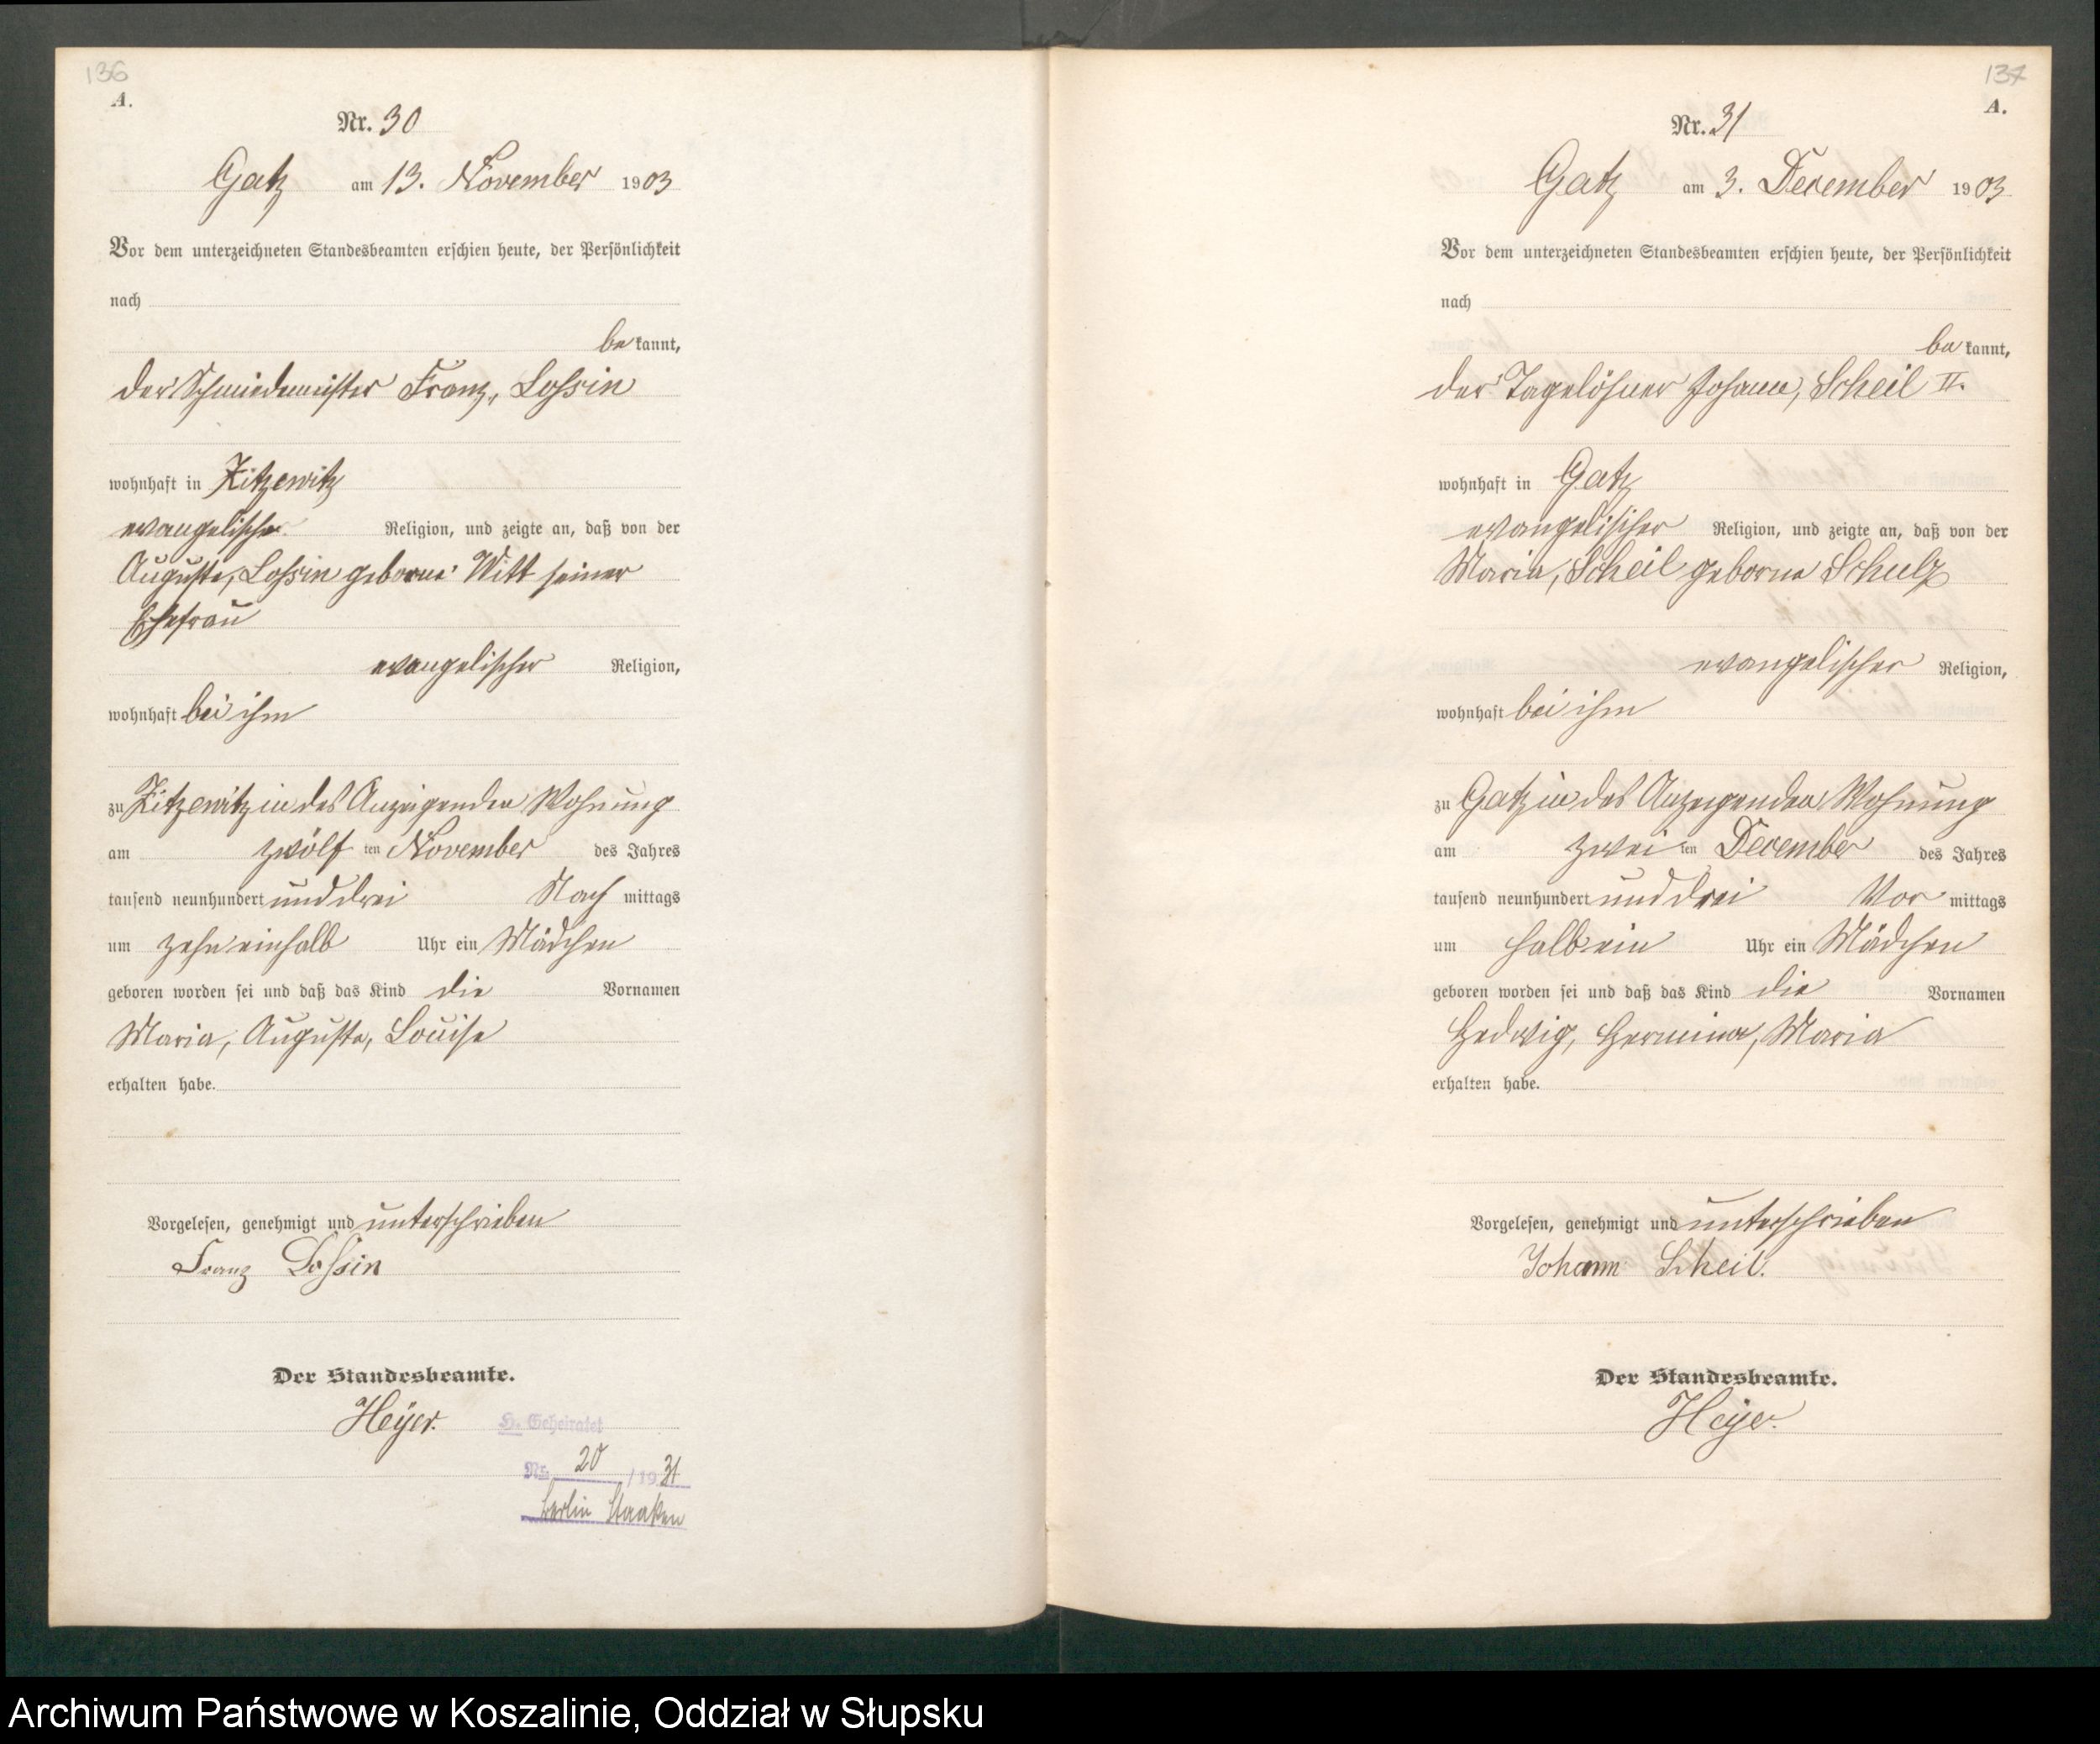 136
A.
Nr. 30
Gatz am 13. November 1903
Vor dem unterzeichneten Standesbeamten erschien heute, der Persönlichkeit
nach
be kannt,
der Schmiedemeister Franz, Lossin
wohnhaft in Zitzewitz
evangelischer Religion, und zeigte an, daß von der
Auguste, Lossin geborne Witt seiner
Ehefrau
evangelischer Religion,
wohnhaft bei ihm
zu Zitzewitz in des Anzeigenden Wohnung
am zwölf ten November des Jahres
tausend neunhundert und drei Nach mittags
um zehn einhalb Uhr ein Mädchen
geboren worden sei und daß das Kind die Vornamen
Maria, Auguste, Louise
erhalten habe.
Vorgelesen, genehmigt und unterschrieben
Franz Lossin
Der Standesbeamte.
Heyer.
H. Geheiratet
Nr. 20 / 1931
Berlin Staaken
137
A.
Nr. 31
Gatz am 3. December 1903
Vor dem unterzeichneten Standesbeamten erschien heute, der Persönlichkeit
nach
be kannt,
der Tagelöhner Johann, Scheil II.
wohnhaft in Gatz
evangelischer Religion, und zeigte an, daß von der
Maria, Scheil geborne Schulz
evangelischer Religion,
wohnhaft bei ihm
zu Gatz in des Anzeigenden Wohnung
am zwei ten December des Jahres
tausend neunhundert und drei Vor mittags
um halb ein Uhr ein Mädchen
geboren worden sei und daß das Kind die Vornamen
Hedwig, Hermine, Maria
erhalten habe.
Vorgelesen, genehmigt und unterschrieben
Johann Scheil.
Der Standesbeamte.
Heyer.
Archiwum Państwowe w Koszalinie, Oddział w Słupsku